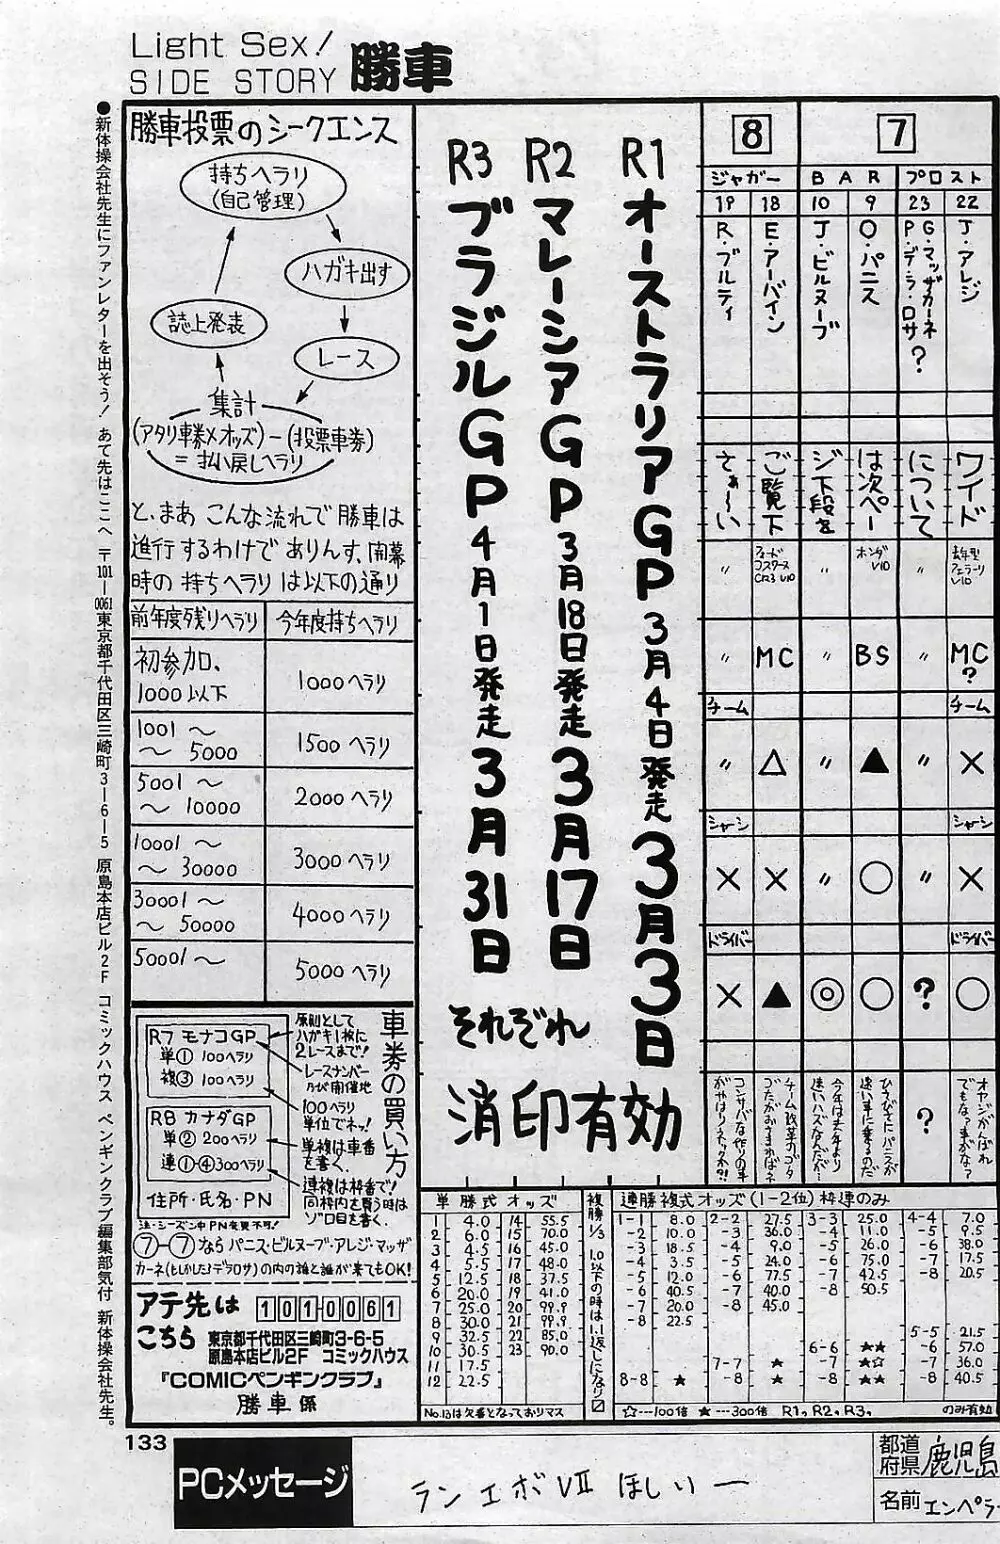 Light Sex!
SIDE STORY 勝車
●新体操会社先生にファンレターを出そう! あて先はここへ 〒101―0061東京都千代田区三崎町3―6―5 原島本店ビル2F コミックハウス ペンギンクラブ編集部気付 新体操会社先生。
勝車投票のシークエンス
持ちヘラリ
(自己管理)
ハガキ出す
レース
集計
(アタリ車券×オッズ)-(投票車券)
=払い戻しヘラリ
誌上発表
と、まあ こんな流れで 勝車は
進行するわけで ありんす、開幕
時の 持ちヘラリ は以下の通り
前年度残りヘラリ 今年度持ちヘラリ
初参加、
1000以下 1000ヘラリ
1001 〜
〜 5000 1500 ヘラリ
5001 〜
〜 10000 2000 ヘラリ
10001 〜
〜 30000 3000 ヘラリ
30001 〜
〜 50000 4000 ヘラリ
50001 〜 5000 ヘラリ
車券の買い方
R7 モナコGP
単① 100ヘラリ
複③ 100ヘラリ
R8 カナダGP
単② 200ヘラリ
連①-④300ヘラリ
住所・氏名・PN
原則として
ハガキ1枚に
2レースまで!
レースナンバー
及び開催地
100ヘラリ
単位でネッ!
単複は車番
を書く、
連複は枠番で!
同枠内を買う時は
ゾロ目を書く、
注・シーズン中PN変更不可!
⑦-⑦なら パニス・ビルヌーブ・アレジ・マッザ
カーネ(もしかしたらデラロサ)の内の誰と誰が来てもOK!
アテ先は 1010061
こちら 東京都千代田区三崎町3-6-5
原島本店ビル2F コミックハウス
『COMICペンギンクラブ』
勝車係
R1 オーストラリアGP 3月4日発走 3月3日
R2 マレーシアGP 3月18日発走 3月17日
R3 ブラジルGP 4月1日発走 3月31日
それぞれ
消印有効
8 7
ジャガー BAR プロスト
19 18 10 9 23 22
J・アレジ
G・マッザカーネ
P・デ・ラ・ロサ?
O・パニス
J・ビルヌーブ
E・アーバイン
R・ブルティ
ワイド
について
は次ペー
ジ下段を
ご覧下
さぁ〜い
〃 フォードコスワースCR3 V10 〃 ホンダV10 〃 去年型フェラーリV10
〃 MC 〃 BS 〃 MC?
チーム チーム
〃 △ 〃 ▲ 〃 ×
シャーシ シャーシ
× × 〃 ○ 〃 ×
ドライバー ドライバー
× ▲ ◎ ○ ? ○
オヤジがんばれでもな?車がな?
?
ひさびさにパニスが速い車に乗るのだ
今年は去年より速いハズなんだが…
チーム改革のゴタゴタがおさまればネ
コンサバな作りの車がやはりネックか?!
単勝式オッズ
1 4.0 14 55.5
2 6.0 15 70.0
3 4.5 16 45.0
4 5.5 17 48.0
5 12.5 18 37.5
6 20.0 19 41.0
7 25.0 20 99.9
8 30.0 21 99.9
9 32.5 22 85.0
10 30.5 23 90.0
11 17.5
12 22.5
No.13は欠番となっておりマス
複勝1/3 1.0以下の時は1.1返しになり〼
連勝複式オッズ(1-2位)枠連のみ
1-1 8.0 2-2 27.5 3-3 25.0 4-4 7.0
-2 10.0 -3 36.0 -4 11.0 -5 9.5
-3 18.5 -4 9.0 -5 26.0 -6 38.0
-4 3.5 -5 24.0 -6 75.0 -7 17.5
-5 12.0 -6 77.5 -7 42.5 -8 20.5
-6 40.5 -7 40.0 -8 50.5
-7 20.0 -8 45.0
-8 22.5
5-5 21.5
6-6 ★★ -6 57.0
7-7 ★ -7 ★☆ -7 36.0
8-8 ★ -8 ★ -8 ★★ -8 40.5
☆---100倍 ★---300倍 R1,R2,R3, のみ有効
133
PCメッセージ
ランエボⅦ ほしいー
都道府県 鹿児島
名前 エンペラー